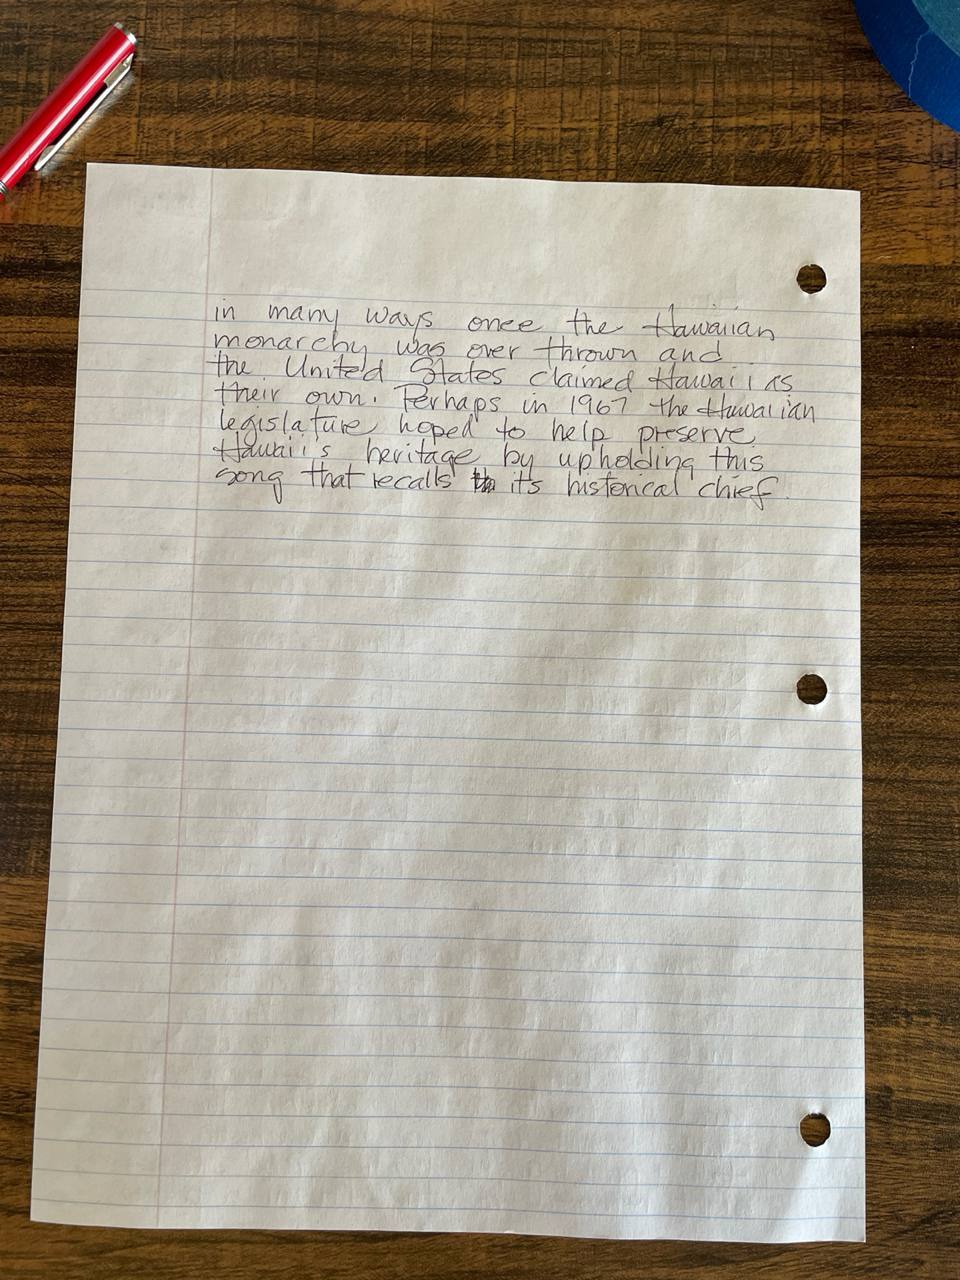 in many ways once the Hawaiian
monarchy was over thrown and
the United States claimed Hawaii as
their own. Perhaps in 1967 the Hawaiian
legislature hoped to help preserve
Hawaii's heritage by upholding this
song that recalls its historical chief.